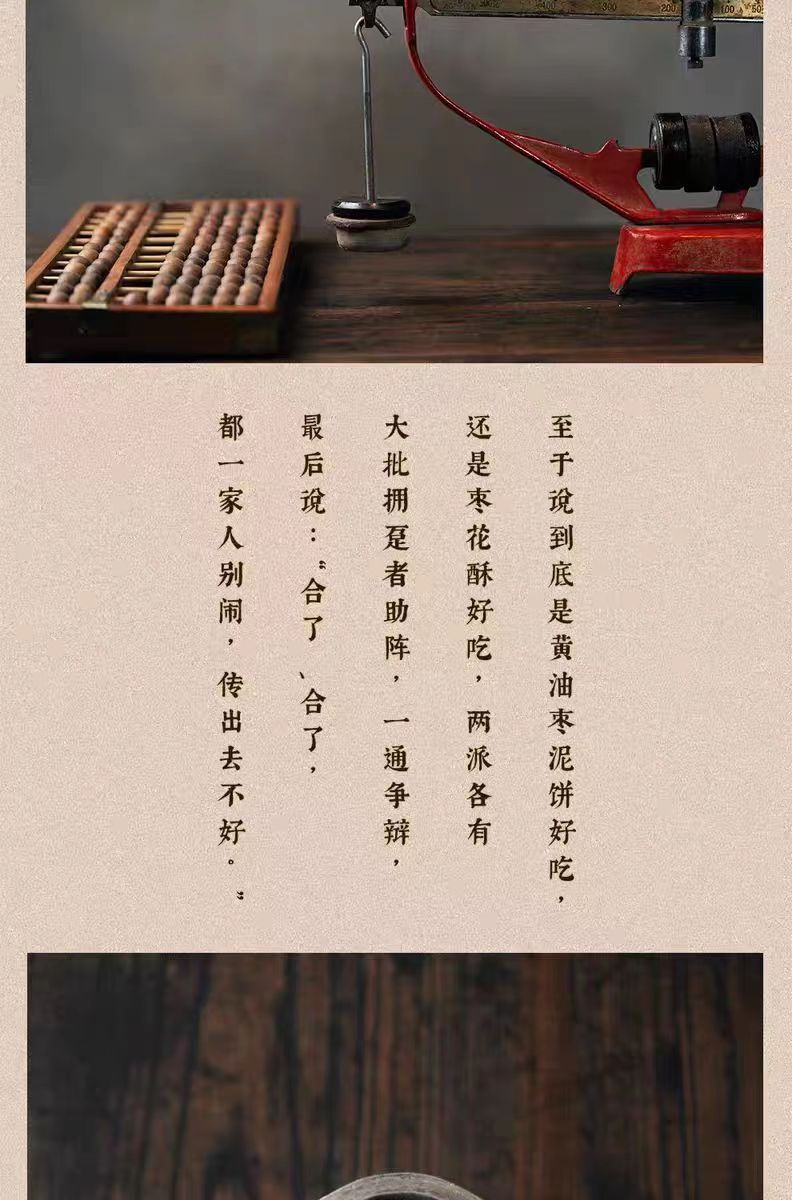 至于说到底是黄油枣泥饼好吃，
还是枣花酥好吃，两派各有
大批拥趸者助阵，一通争辩，
最后说：“合了、合了，
都一家人别闹，传出去不好。”